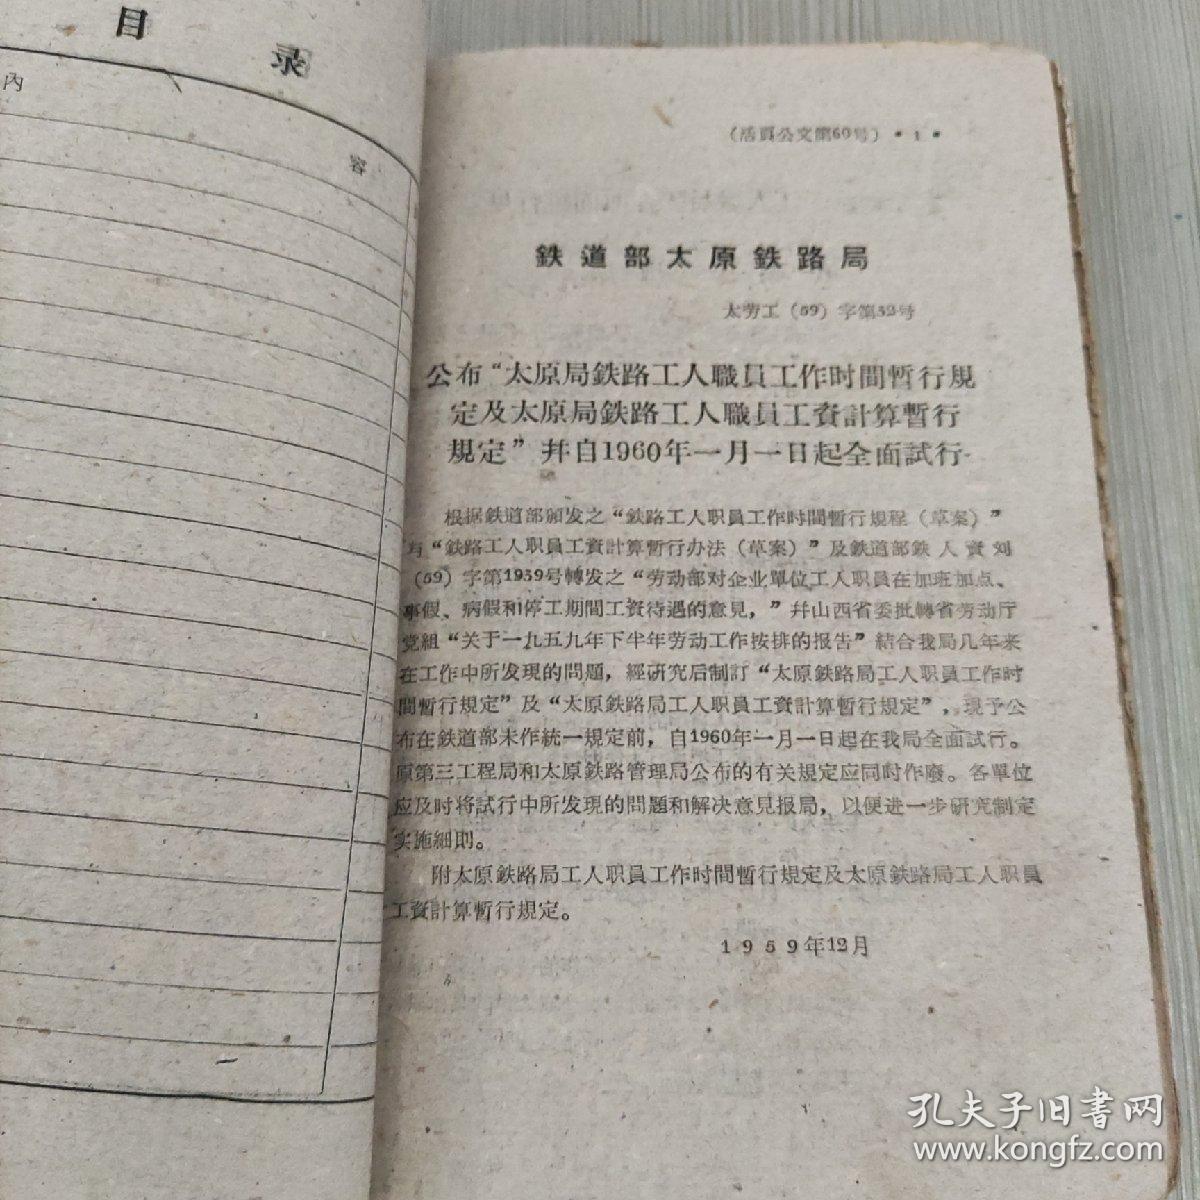 目录
內
容
(活頁公文第60号) • 1 •
鉄道部太原鉄路局
太劳工(59)字第52号
公布“太原局鉄路工人職員工作时間暫行規
定及太原局鉄路工人職員工資計算暫行
規定”幷自1960年一月一日起全面試行
根据鉄道部頒发之“鉄路工人职員工作时間暫行規程(草案)”
与“鉄路工人职員工資計算暫行办法(草案)”及鉄道部鉄人資刘
(59)字第1959号轉发之“劳动部对企业單位工人职員在加班加点、
事假、病假和停工期間工資待遇的意見,”幷山西省委批轉省劳动厅
党組“关于一九五九年下半年劳动工作按排的报告”結合我局几年来
在工作中所发現的問題,經研究后制訂“太原鉄路局工人职員工作时
間暫行規定”及“太原鉄路局工人职員工資計算暫行規定”,現予公
布在鉄道部未作統一規定前,自1960年一月一日起在我局全面試行。
原第三工程局和太原鉄路管理局公布的有关規定应同时作廢。各單位
应及时将試行中所发現的問題和解决意見报局,以便进一步研究制定
实施細則。
附太原鉄路局工人职員工作时間暫行規定及太原鉄路局工人职員
工資計算暫行規定。
1959年12月
孔夫子旧書网
www.kongfz.com